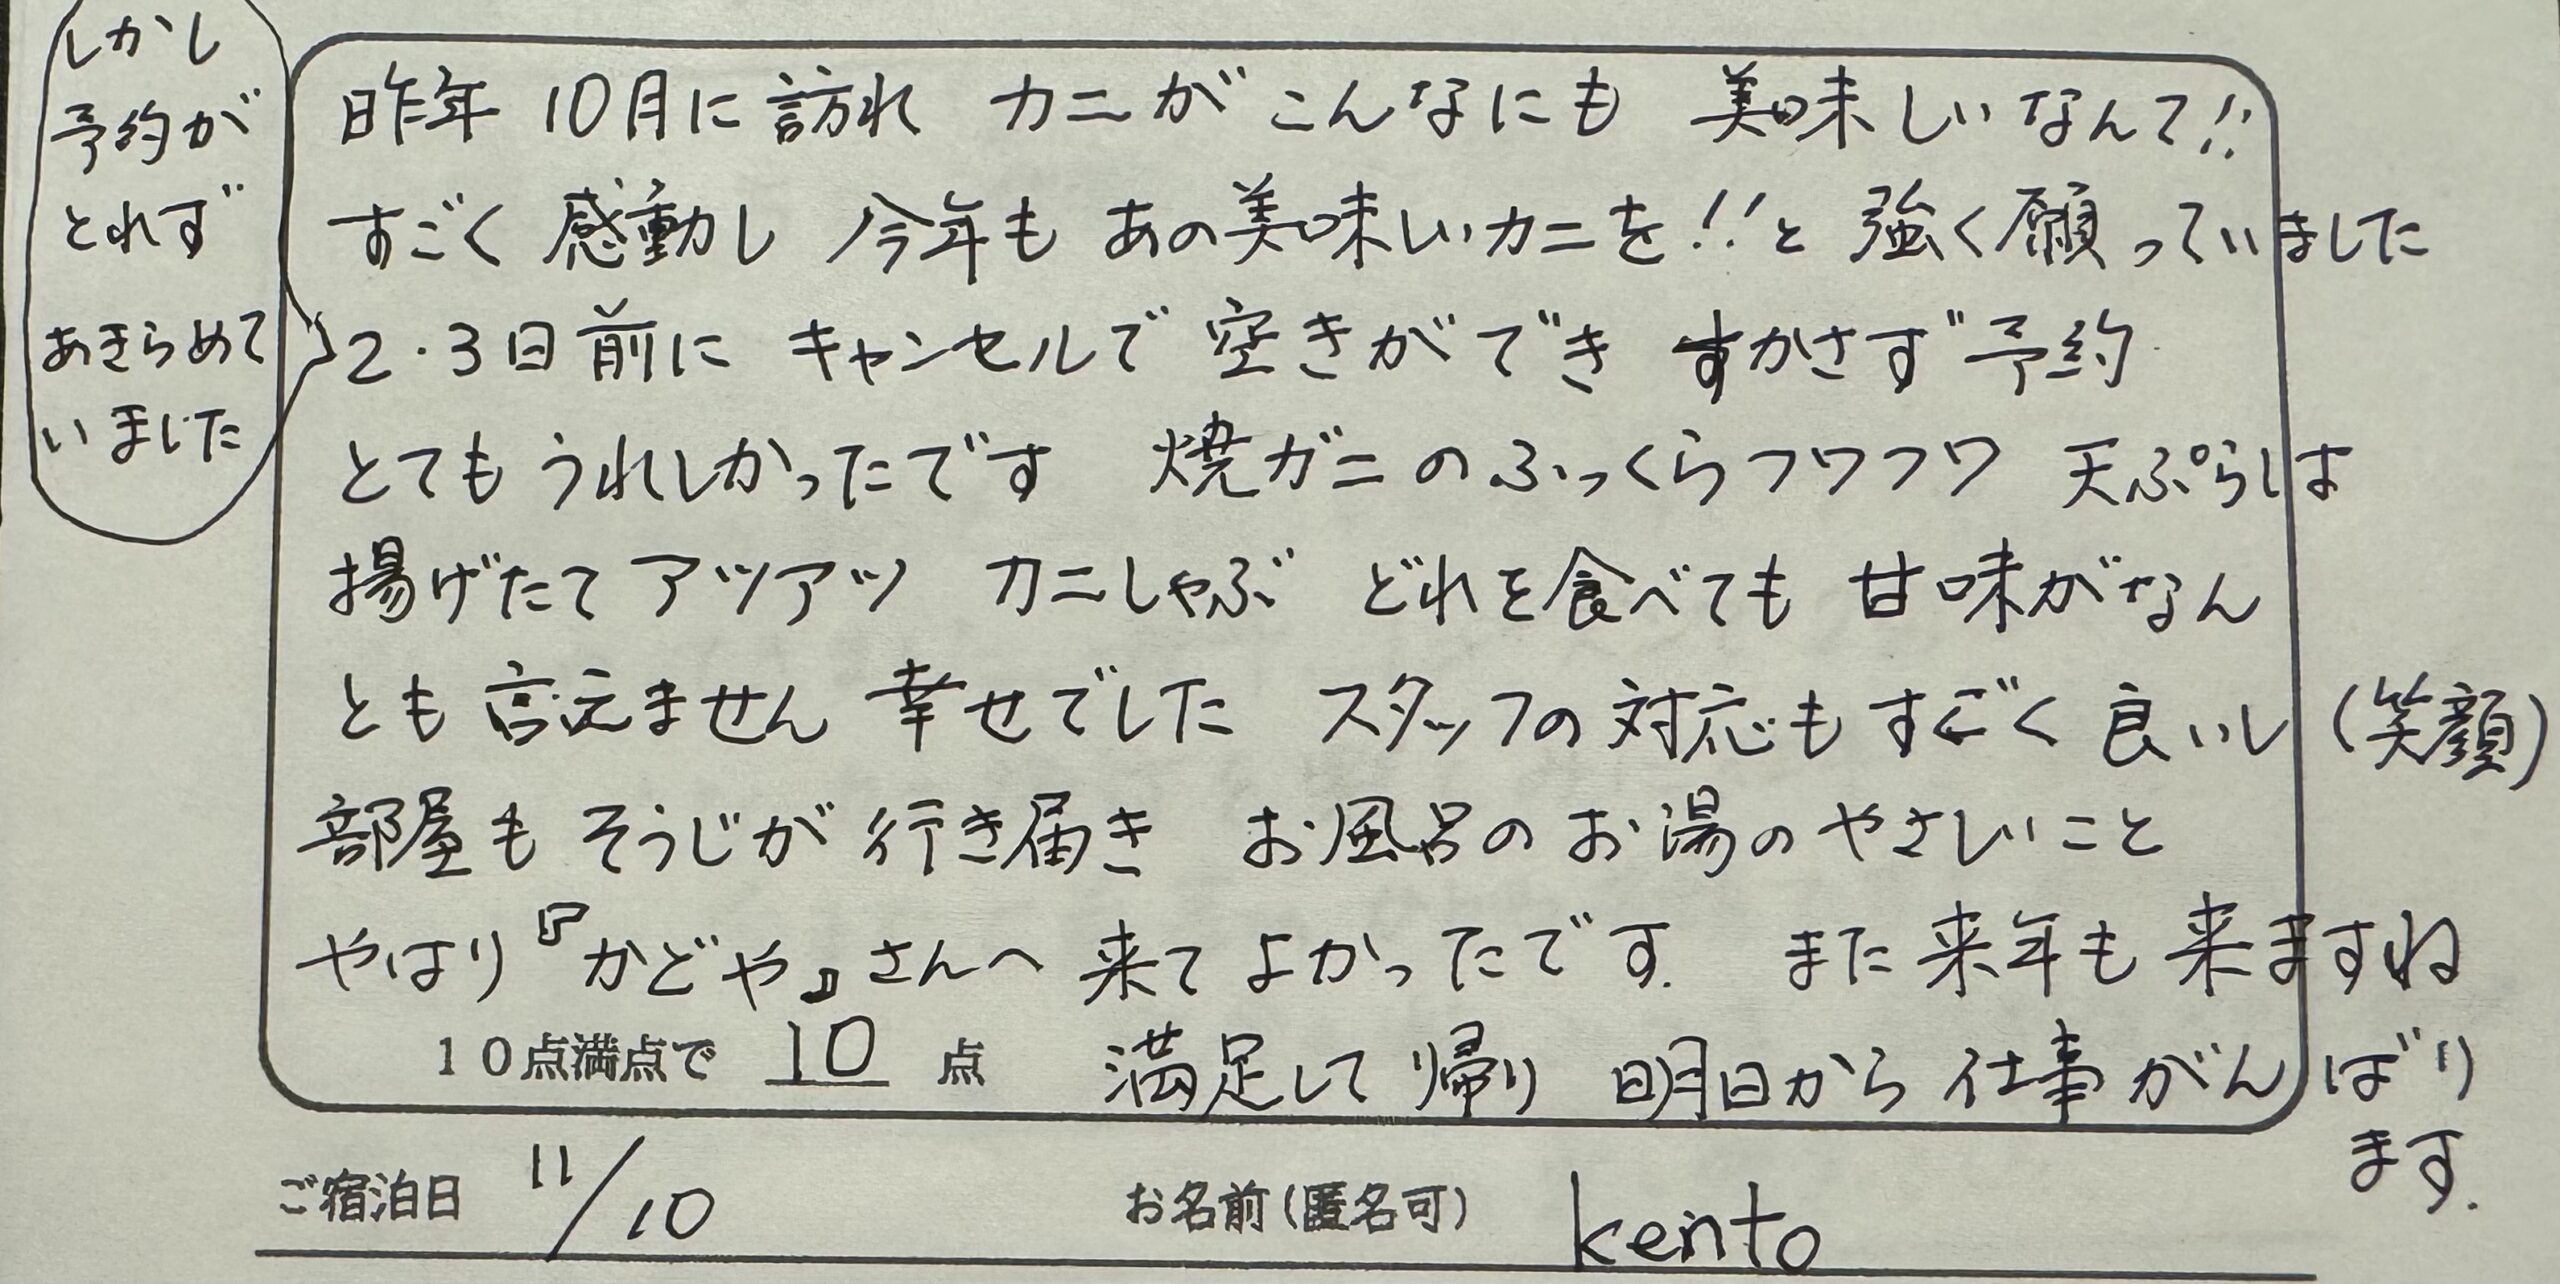 昨年 10月に訪れ カニがこんなにも 美味しいなんて!!
すごく 感動し 今年も あの美味しいカニを!!と 強く願っていました
しかし
予約が
とれず
あきらめて
いました
2・3日前に キャンセルで 空きができ すかさず予約
とても うれしかったです 焼ガニのふっくらフワフワ 天ぷらは
揚げたてアツアツ カニしゃぶ どれを食べても 甘味がなん
とも 言えません 幸せでした スタッフの対応もすごく良いし(笑顔)
部屋もそうじが行き届き お風呂のお湯のやさしいこと
やはり『かどや』さんへ来てよかったです. また来年も来ますね
10点満点で 10 点 満足して帰り 明日から仕事がんばり
ます.
ご宿泊日 11/10 お名前(匿名可) kento